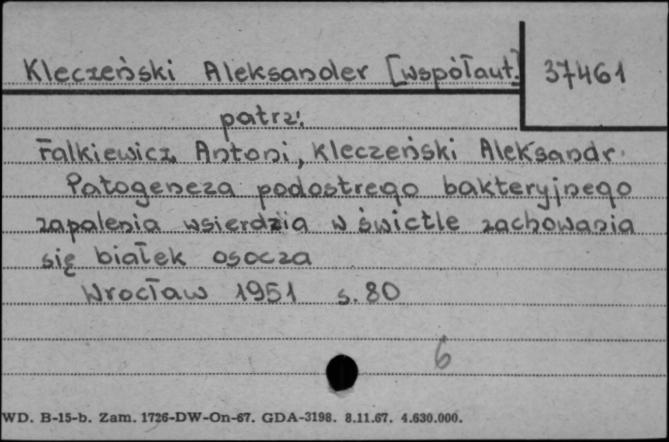 Kleczeński Aleksander [współaut.] 37461
patrz:
Falkiewicz Antoni, Kleczeński Aleksandr.
Patogeneza podostrego bakteryjnego
zapalenia wsierdzia w świetle zachowania
się białek osocza
Wrocław 1951 s. 80
6
WD. B-15-b. Zam. 1726-DW-On-67. GDA-3198. 8.11.67. 4.630.000.